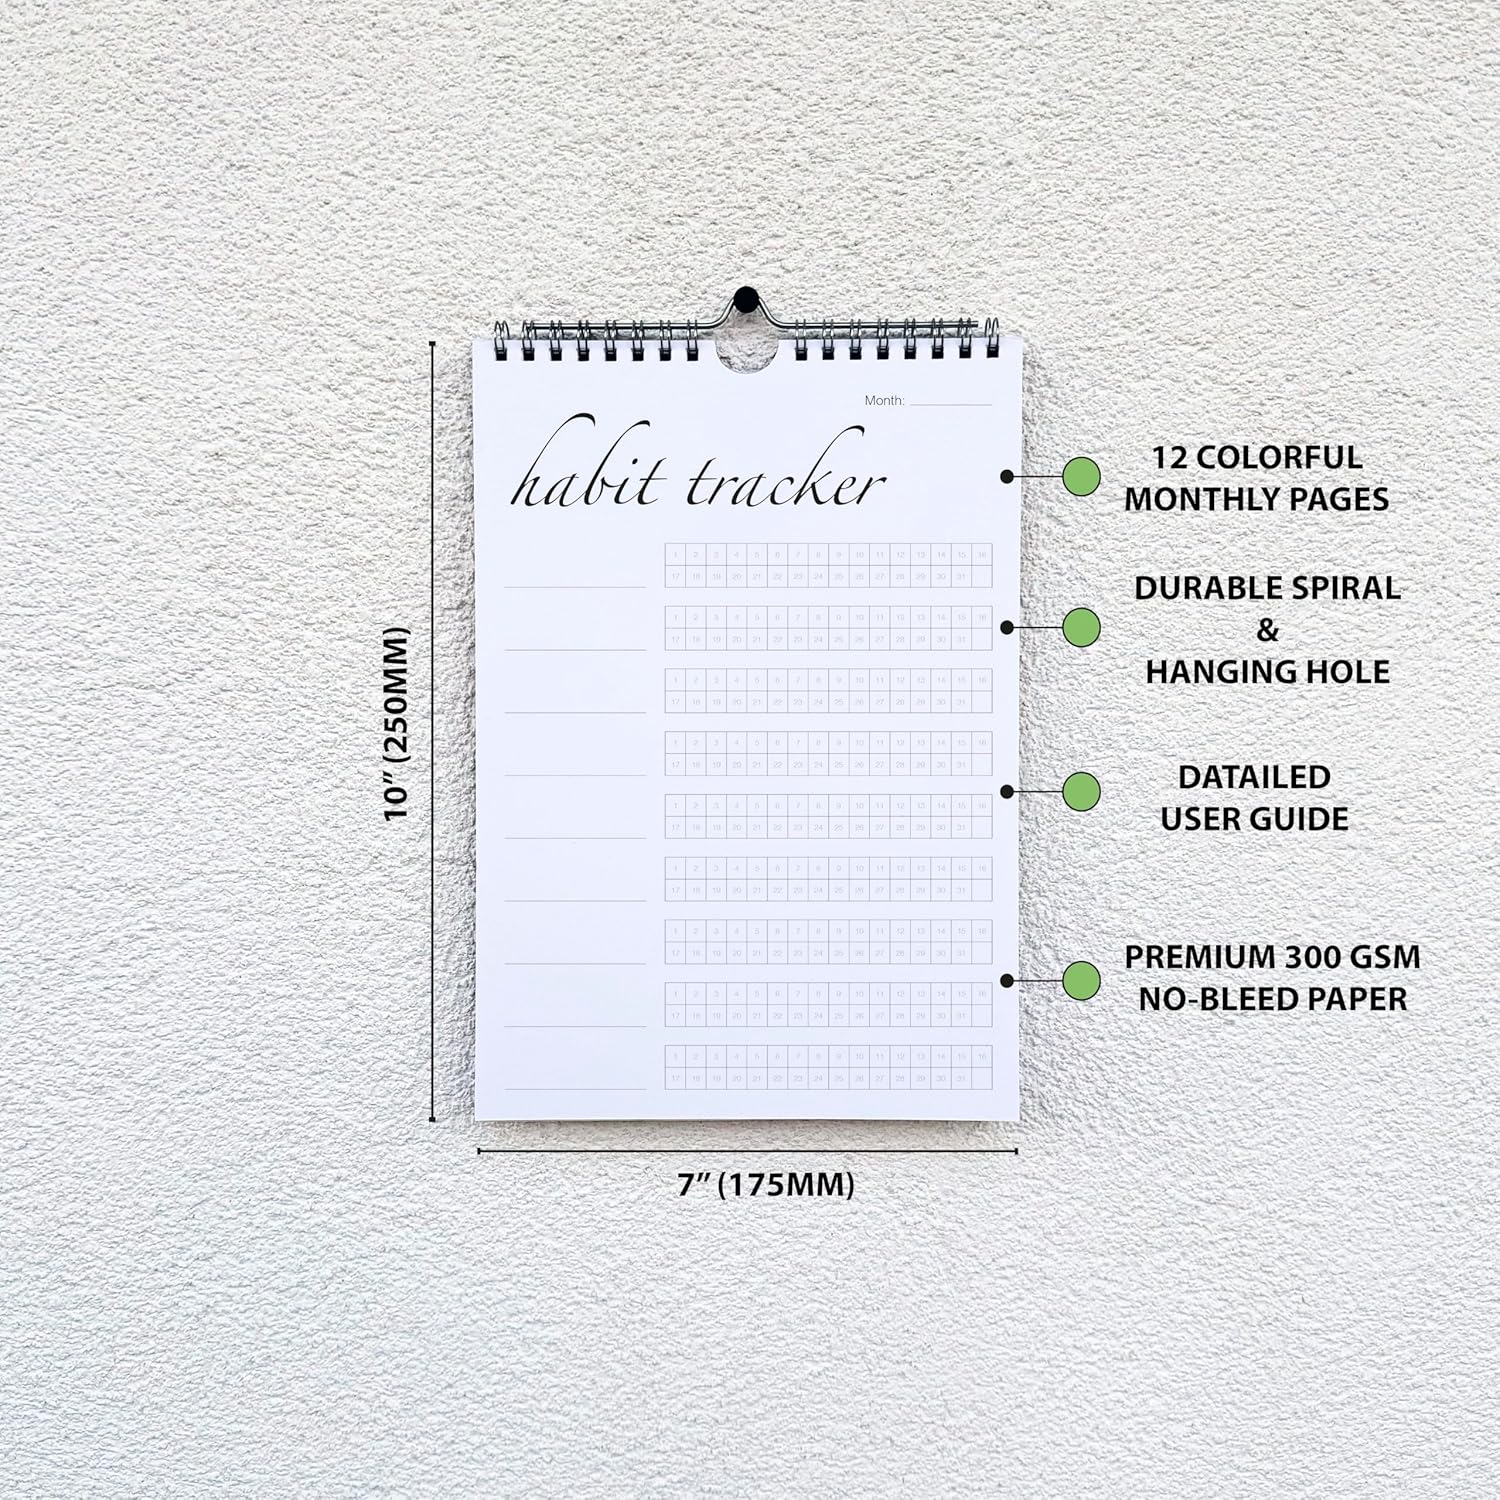 Month:
habit tracker
1 2 3 4 5 6 7 8 9 10 11 12 13 14 15 16
17 18 19 20 21 22 23 24 25 26 27 28 29 30 31
1 2 3 4 5 6 7 8 9 10 11 12 13 14 15 16
17 18 19 20 21 22 23 24 25 26 27 28 29 30 31
1 2 3 4 5 6 7 8 9 10 11 12 13 14 15 16
17 18 19 20 21 22 23 24 25 26 27 28 29 30 31
1 2 3 4 5 6 7 8 9 10 11 12 13 14 15 16
17 18 19 20 21 22 23 24 25 26 27 28 29 30 31
1 2 3 4 5 6 7 8 9 10 11 12 13 14 15 16
17 18 19 20 21 22 23 24 25 26 27 28 29 30 31
1 2 3 4 5 6 7 8 9 10 11 12 13 14 15 16
17 18 19 20 21 22 23 24 25 26 27 28 29 30 31
1 2 3 4 5 6 7 8 9 10 11 12 13 14 15 16
17 18 19 20 21 22 23 24 25 26 27 28 29 30 31
1 2 3 4 5 6 7 8 9 10 11 12 13 14 15 16
17 18 19 20 21 22 23 24 25 26 27 28 29 30 31
1 2 3 4 5 6 7 8 9 10 11 12 13 14 15 16
17 18 19 20 21 22 23 24 25 26 27 28 29 30 31
10" (250MM)
7" (175MM)
12 COLORFUL
MONTHLY PAGES
DURABLE SPIRAL
&
HANGING HOLE
DATAILED
USER GUIDE
PREMIUM 300 GSM
NO-BLEED PAPER